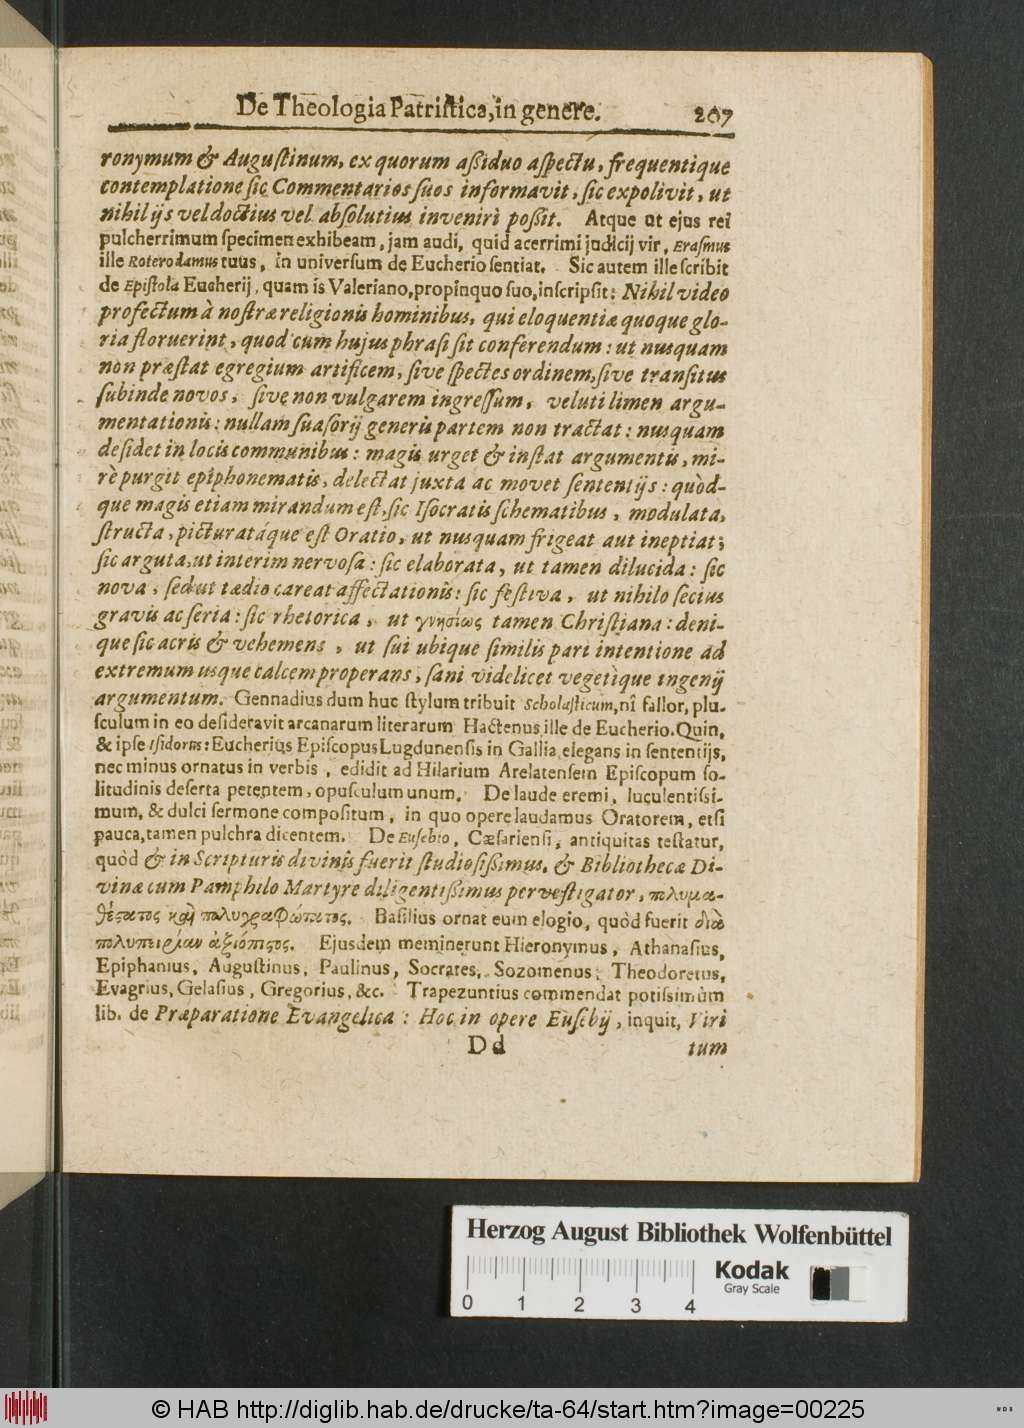 De Theologia Patristica, in genere. 207
ronymum & Augustinum, ex quorum aßiduo aspectu, frequentique
contemplatione sic Commentarios suos informavit, sic expolivit, ut
nihil ijs vel doctius vel absolutius inveniri poßit. Atque ut ejus rei
pulcherrimum specimen exhibeam, jam audi, quid acerrimi judicij vir, Erasmus
ille Roterodamus tuus, in universum de Eucherio sentiat. Sic autem ille scribit
de Epistola Eucherij, quam is Valeriano, propinquo suo, inscripsit: Nihil video
profectum à nostræ religionis hominibus, qui eloquentiæ quoque glo-
ria floruerint, quod cum hujus phrasi sit conferendum: ut nusquam
non præstat egregium artificem, sive spectes ordinem, sive transitus
subinde novos, sive non vulgarem ingressum, veluti limen argu-
mentationis: nullam suasorij generis partem non tractat: nusquam
desidet in locis communibus: magis urget & instat argumentis, mi-
rè purgit epiphonematis, delectat juxta ac movet sententijs: quod-
que magis etiam mirandum est, sic Isocratis schematibus, modulata,
structa, picturatáque est Oratio, ut nusquam frigeat aut ineptiat;
sic arguta, ut interim nervosa: sic elaborata, ut tamen dilucida: sic
nova, sed ut tædio careat affectationis: sic festiva, ut nihilo secius
gravis ac seria: sic rhetorica, ut γνησίως tamen Christiana: deni-
que sic acris & vehemens, ut sui ubique similis pari intentione ad
extremum usque calcem properans, sani videlicet vegetique ingenij
argumentum. Gennadius dum huc stylum tribuit Scholasticum, nî fallor, plu-
sculum in eo desideravit arcanarum literarum Hactenus ille de Eucherio. Quin,
& ipse Isidorus: Eucherius Episcopus Lugdunensis in Gallia, elegans in sententijs,
nec minus ornatus in verbis, edidit ad Hilarium Arelatensem Episcopum so-
litudinis deserta petentem, opusculum unum. De laude eremi, luculentissi-
mum, & dulci sermone compositum, in quo opere laudamus Oratorem, etsi
pauca, tamen pulchra dicentem. De Eusebio, Cæsariensi, antiquitas testatur,
quòd & in Scripturis divinis fuerit studiosißimus, & Bibliothecæ Di-
vinæ cum Pamphilo Martyre diligentißimus pervestigator, πολυμα-
θέςατος καὶ πολυγραφώτατος. Basilius ornat eum elogio, quòd fuerit διὰ
πολυπειρίαν ἀξιόπιςος. Ejusdem meminerunt Hieronymus, Athanasius,
Epiphanius, Augustinus, Paulinus, Socrates, Sozomenus, Theodoretus,
Evagrius, Gelasius, Gregorius, &c. Trapezuntius commendat potissimùm
lib. de Præparatione Evangelica: Hoc in opere Eusebij, inquit, Viri
Dd tum
Herzog August Bibliothek Wolfenbüttel
Kodak
Gray Scale
0 1 2 3 4
© HAB http://diglib.hab.de/drucke/ta-64/start.htm?image=00225